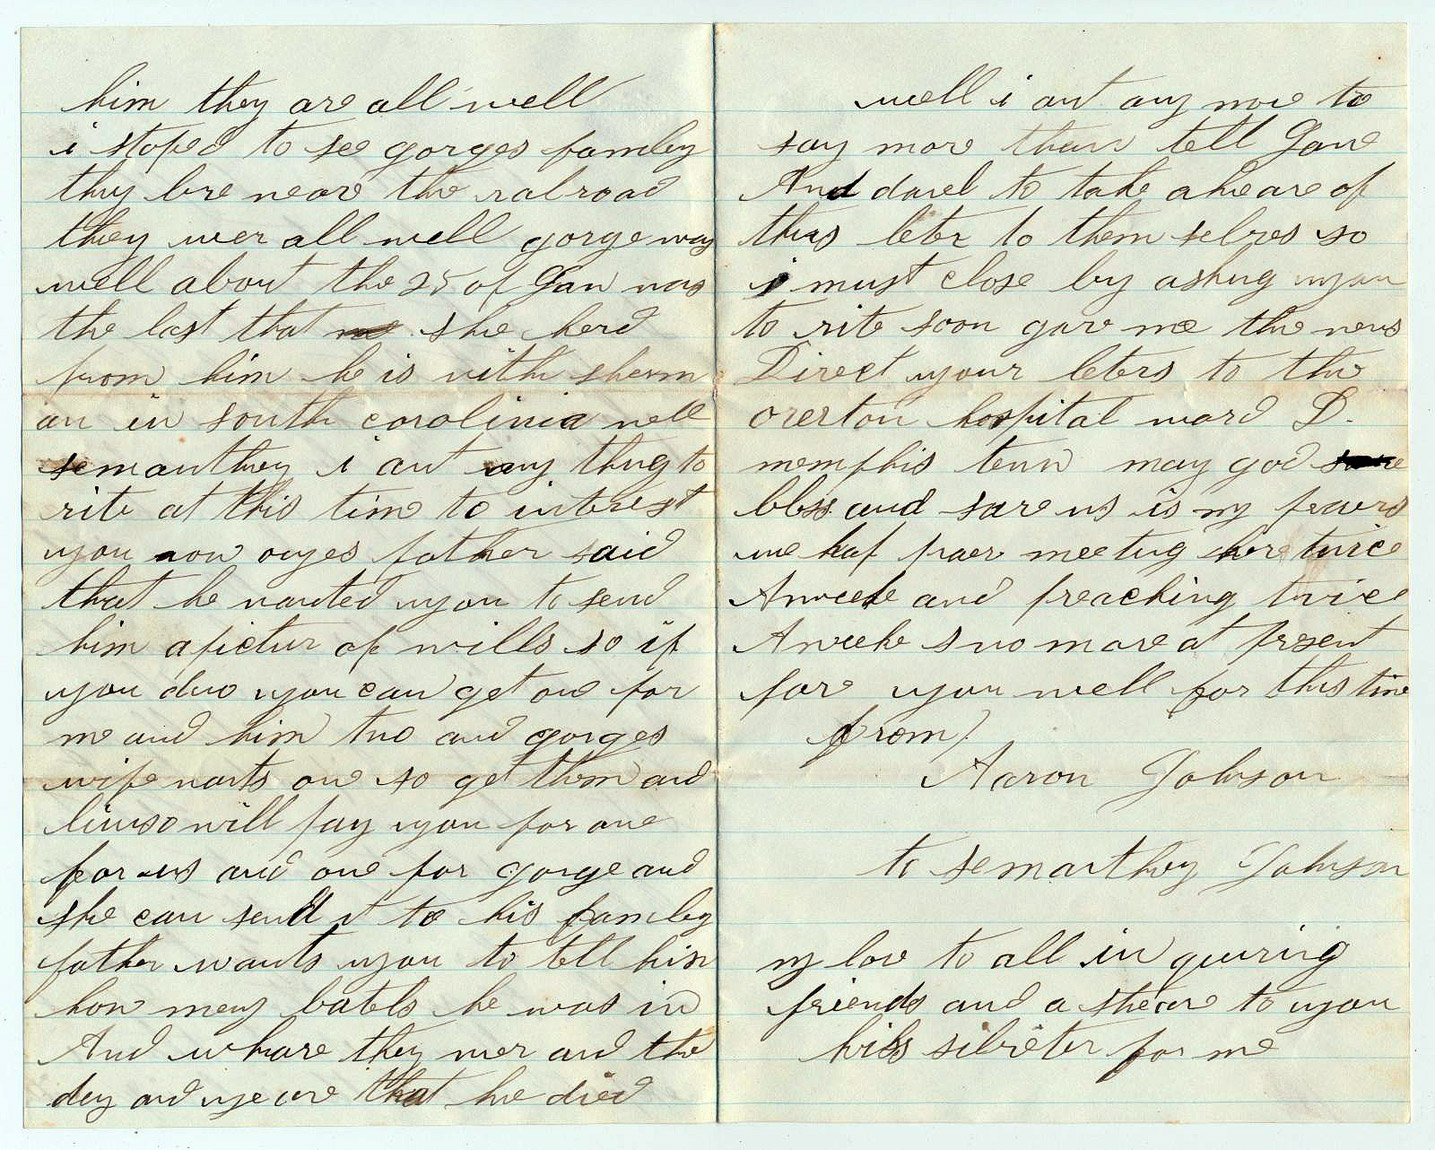 him they are all well
i stoped to see gorges famley
thy live neare the ralroad
they wer all well gorge was
well about the 25 of Jan was
the last that she herd
from him he is with sherm
an in south carolinia well
semanthey i ant any thing to
rite at this time to interest
you now oyes father said
that he wanted you to send
him a pictur of wills so if
you duo you can get one for
me and him two and gorges
wife wants one so get them and
will pay you for one
for us and one for gorge and
she can send it to his famley
father wants you to tell him
how meny batels he was in
And whare they wer and the
dey and yeare that he died
well i ant any more to
say more than tell Jane
And davel to take a sheare of
this leter to them selves so
i must close by asking you
to rite soon gave me the news
Direct your leters to the
overton hospital ward D.
memphis tenn may god
bless and save us is my praers
we haf praer meeting here twice
A weeke and preaching twice
A weeke s no more at presen t
fare you well for this time
from
Aaron Johnson
to semanthey Johnson
my love to all in quiring
friends and a sheare to you
kiss for me